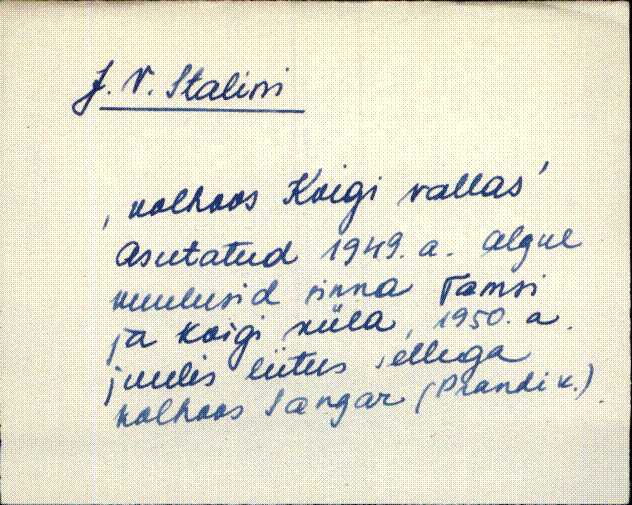 J. V. Stalini
'kolhoos Koigi vallas'
Asutatud 1949. a. Algul
kuulusid sinna Tamsi
ja Koigi küla, 1950. a.
juulis liitus sellega
kolhoos Sangar (Prandi k.)